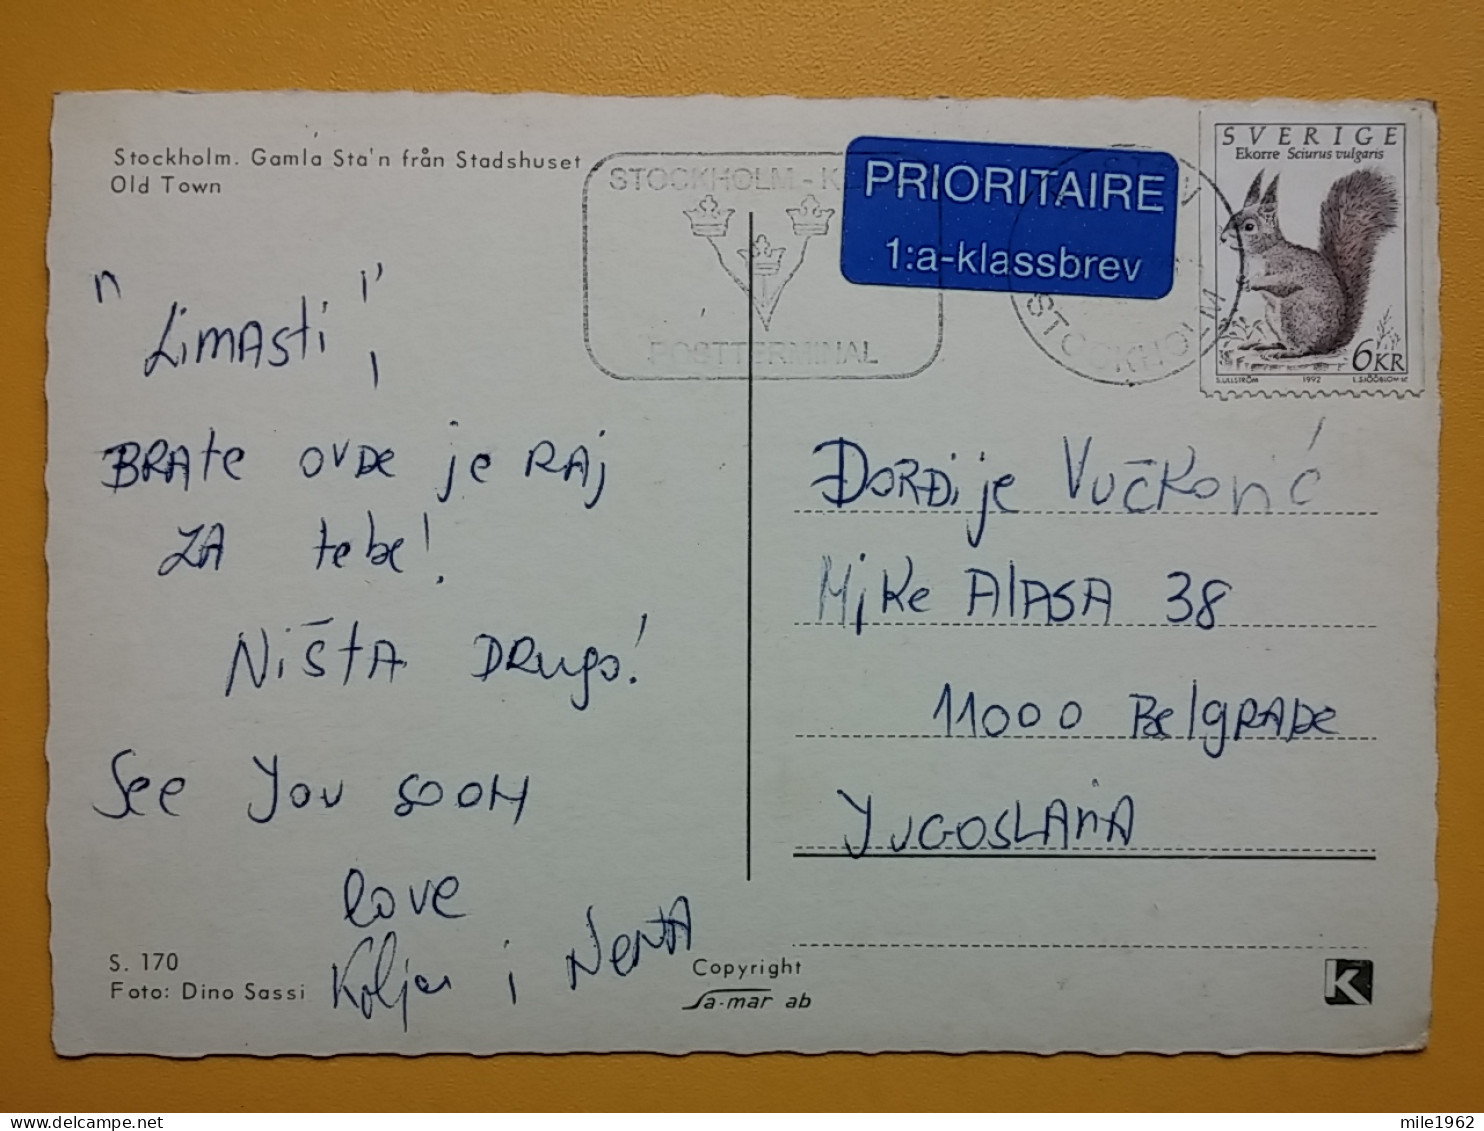 Stockholm. Gamla Sta'n från Stadshuset
Old Town
STOCKHOLM - K
POSTTERMINAL
PRIORITAIRE
1:a-klassbrev
STOCKHOLM
SVERIGE
Ekorre Sciurus vulgaris
6KR
S.ULLSTRÖM 1992 L.SJÖÖBLOM SC
"LiMASti!"
BRAte OVDe je RAj
ZA tebe!
NiŠtA DRugo!
See You sooN
love
Koljen i NeNA
ĐORĐije VUČKović
Mike AlASA 38
11000 BelGRADe
YUGOSLAViA
S. 170
Foto: Dino Sassi
Copyright
Sa-mar ab
K
mile1962